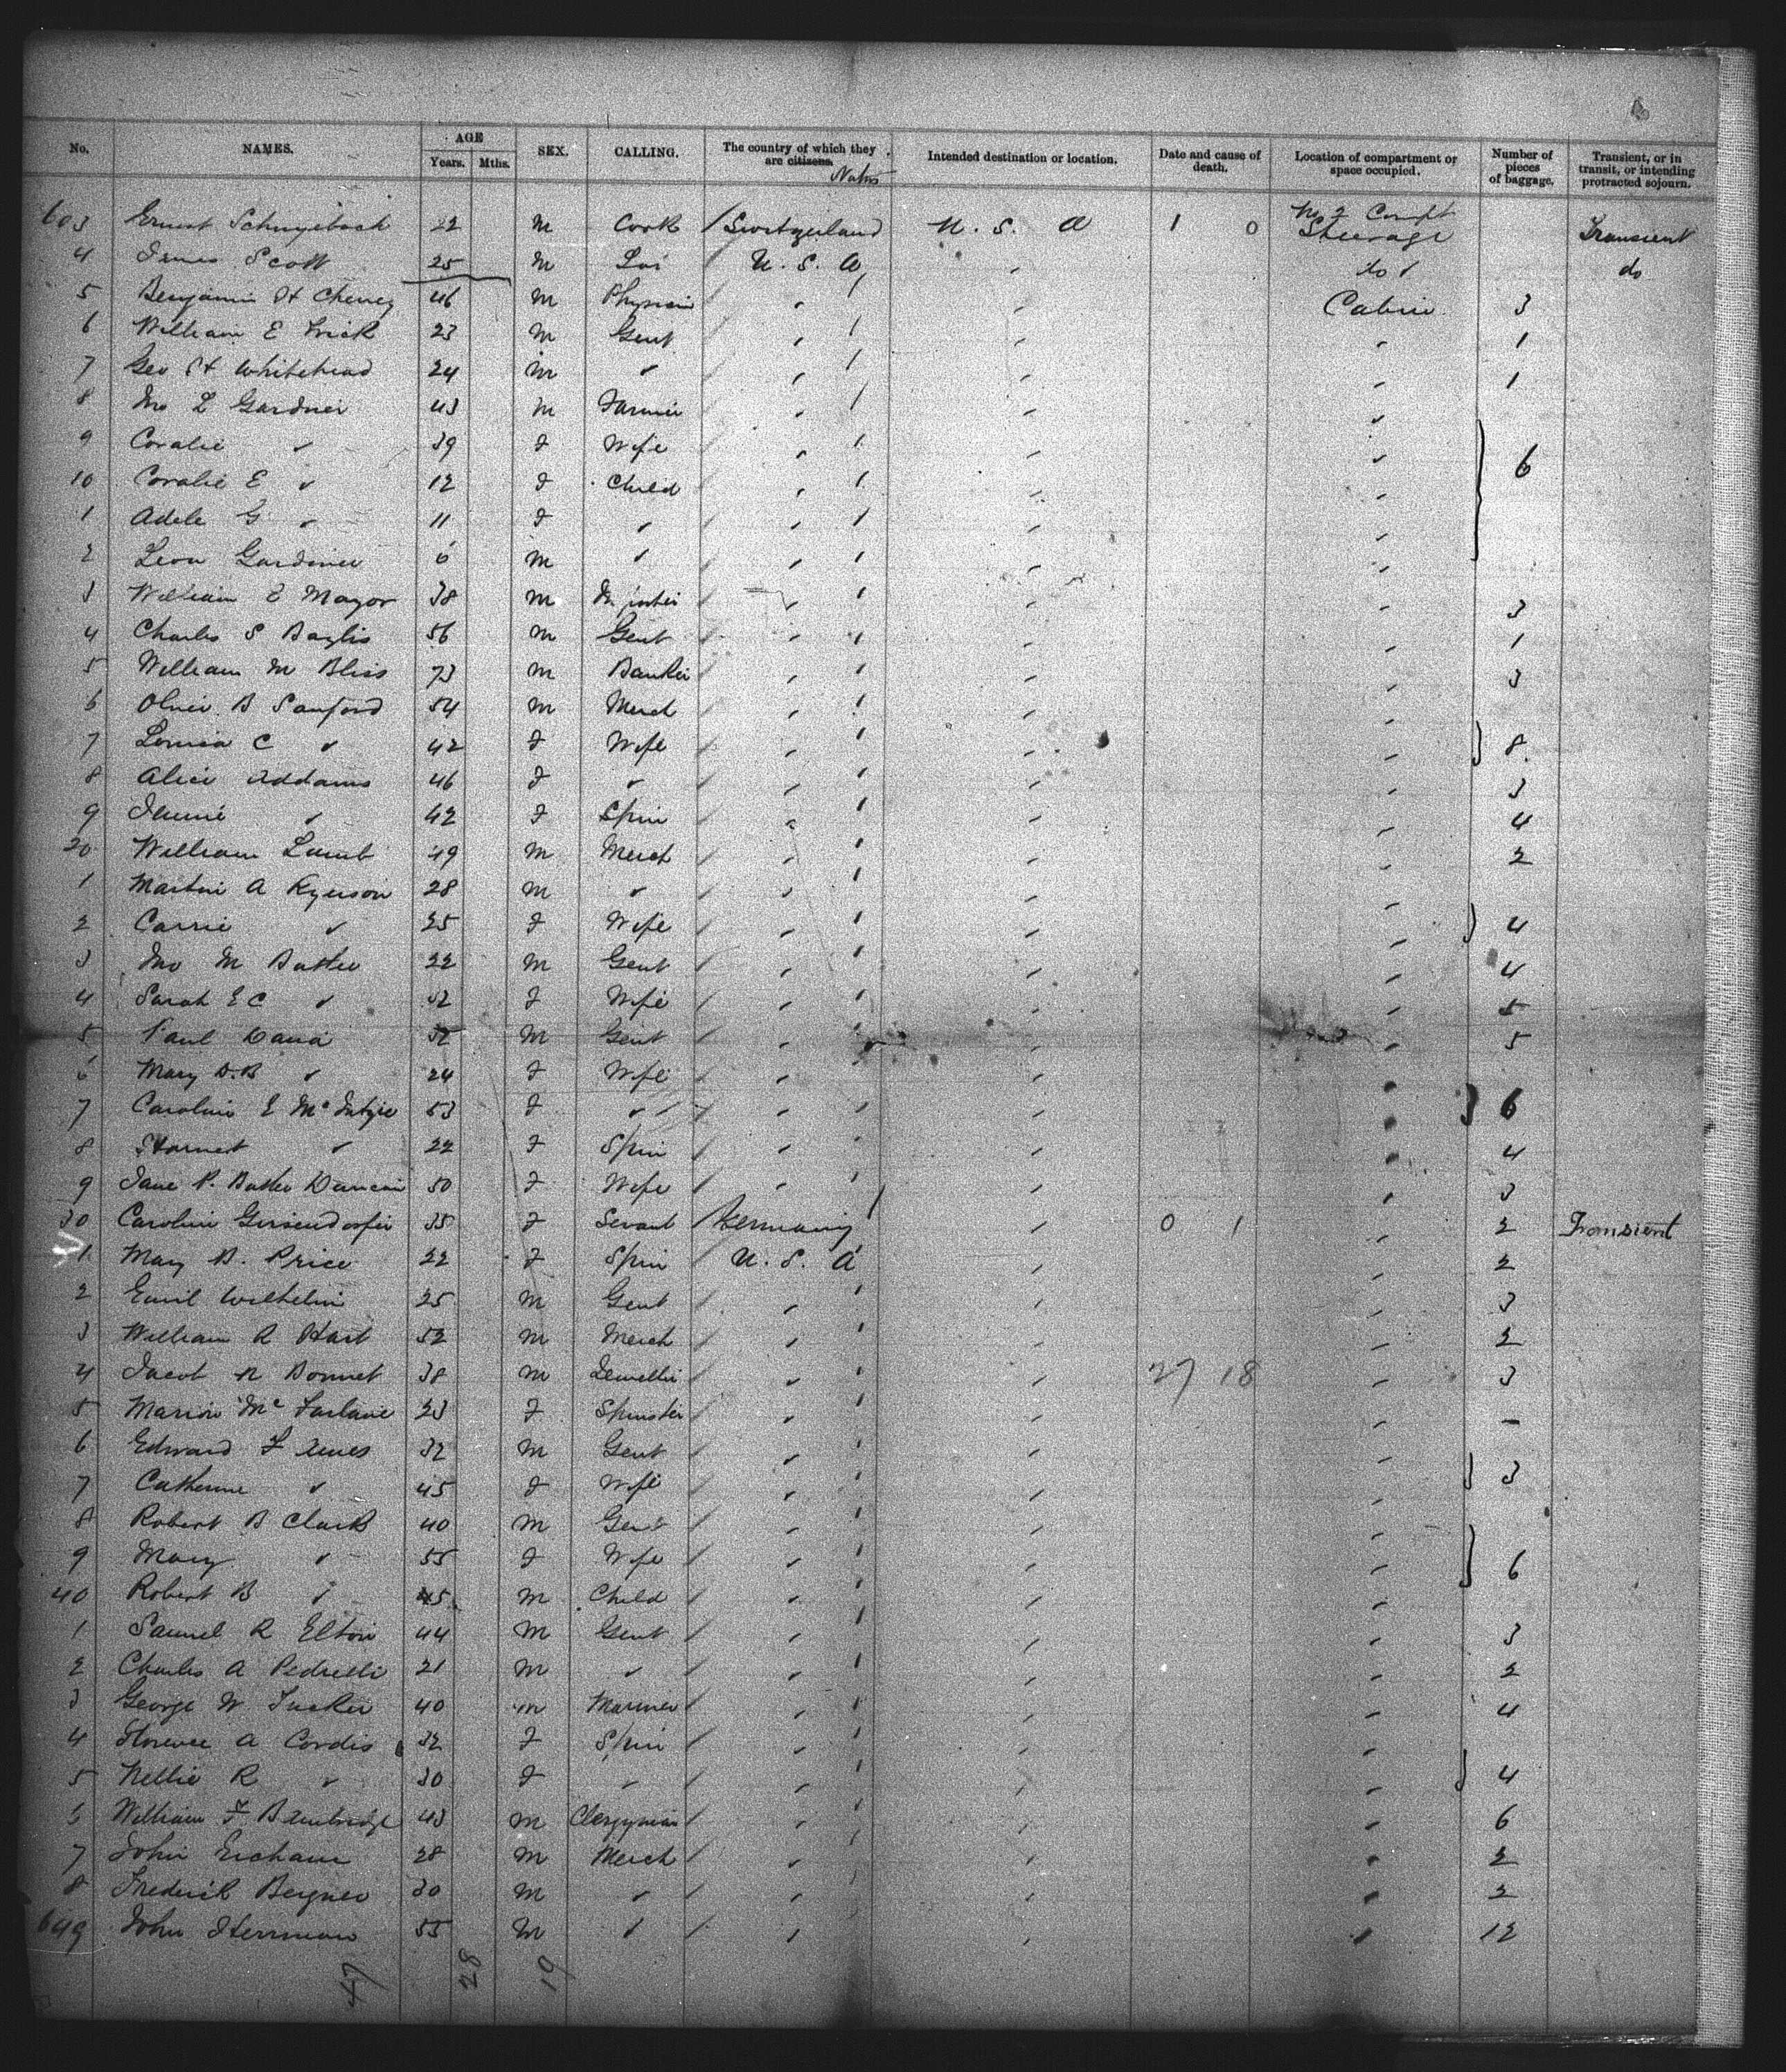 No. NAMES. AGE Years. Mths. SEX. CALLING. The country of which they are citizens. Natvs Intended destination or location. Date and cause of death. Location of compartment or space occupied. Number of pieces of baggage. Transient, or in transit, or intending protracted sojourn.
603 Ernest 22 M Cook / Switzerland U. S. A 1 0 No 2 Compt Steerage Transient
4 James Scott 25 M U. S. A " do " do
5 Benjamin H Cheney 46 M Physician " " Cabin 3
6 William E Frick 23 M Gent " " " 1
7 Geo H Whitehead 24 M " " " " 1
8 Jno L Gardner 43 M Farmer " " "
9 Coralie " 39 F Wife " " " 6
10 Coralie E " 12 F Child " " "
1 Adele G " 11 F " " " "
2 Leon Gardiner 6 M " " " "
3 William E Mayor 38 M " " " 3
4 Charles S Baylis 56 M Gent " " " 1
5 William M Bliss 73 M Banker " " " 3
6 Oliver B Sanford 54 M Merch " " "
7 Louisa C " 42 F Wife " " " 8
8 Alice Addams 46 F " " " " 3
9 Jennie " 42 F Spin " " " 4
20 William Lumb 49 M Merch " " " 2
1 Martin A Ryerson 28 M " " " "
2 Carrie " 25 F Wife " " " 4
3 Jno M Butler 22 M Gent " " " 4
4 Sarah E C " 32 F Wife " " " 5
5 Paul Dana 32 M Gent " " " 5
6 Mary D.B " 24 F Wife " " "
7 Caroline E McIntyre 53 F " " " " 6
8 Harriet " 22 F Spin " " " 4
9 Jane P. Butler Duncan 50 F Wife " " " 3
30 Caroline 35 F Servant / Germany " 0 1 " 2 Transient
1 Mary B. Price 22 F Spin U. S. A " " 2
2 Emil Wilhelm 25 M Gent " " " 3
3 William R Hart 52 M Merch " " " 2
4 Jacob R Bonnet 38 M Jeweller " " 27 18 " 3
5 Marion McFarlane 23 F Spinster " " " –
6 Edward F Ames 32 M Gent " " "
7 Catherine " 45 F Wife " " " 3
8 Robert B Clark 40 M Gent " " "
9 Mary " 55 F Wife " " " 6
40 Robert B " 45 M Child " " "
1 Samuel R Elton 44 M Gent " " " 3
2 Charles A Pedrelli 21 M " " " " 2
3 George W Tucker 40 M Mariner " " " 4
4 Florence A Cordis 32 F Spin " " "
5 Nellie R " 30 F " " " " 4
6 William 43 M Clergyman " " " 6
7 John 28 M Merch " " " 2
8 Frederick Bergner 30 M " " " " 2
649 John Herrman 55 M " " " " 12
47 28 19